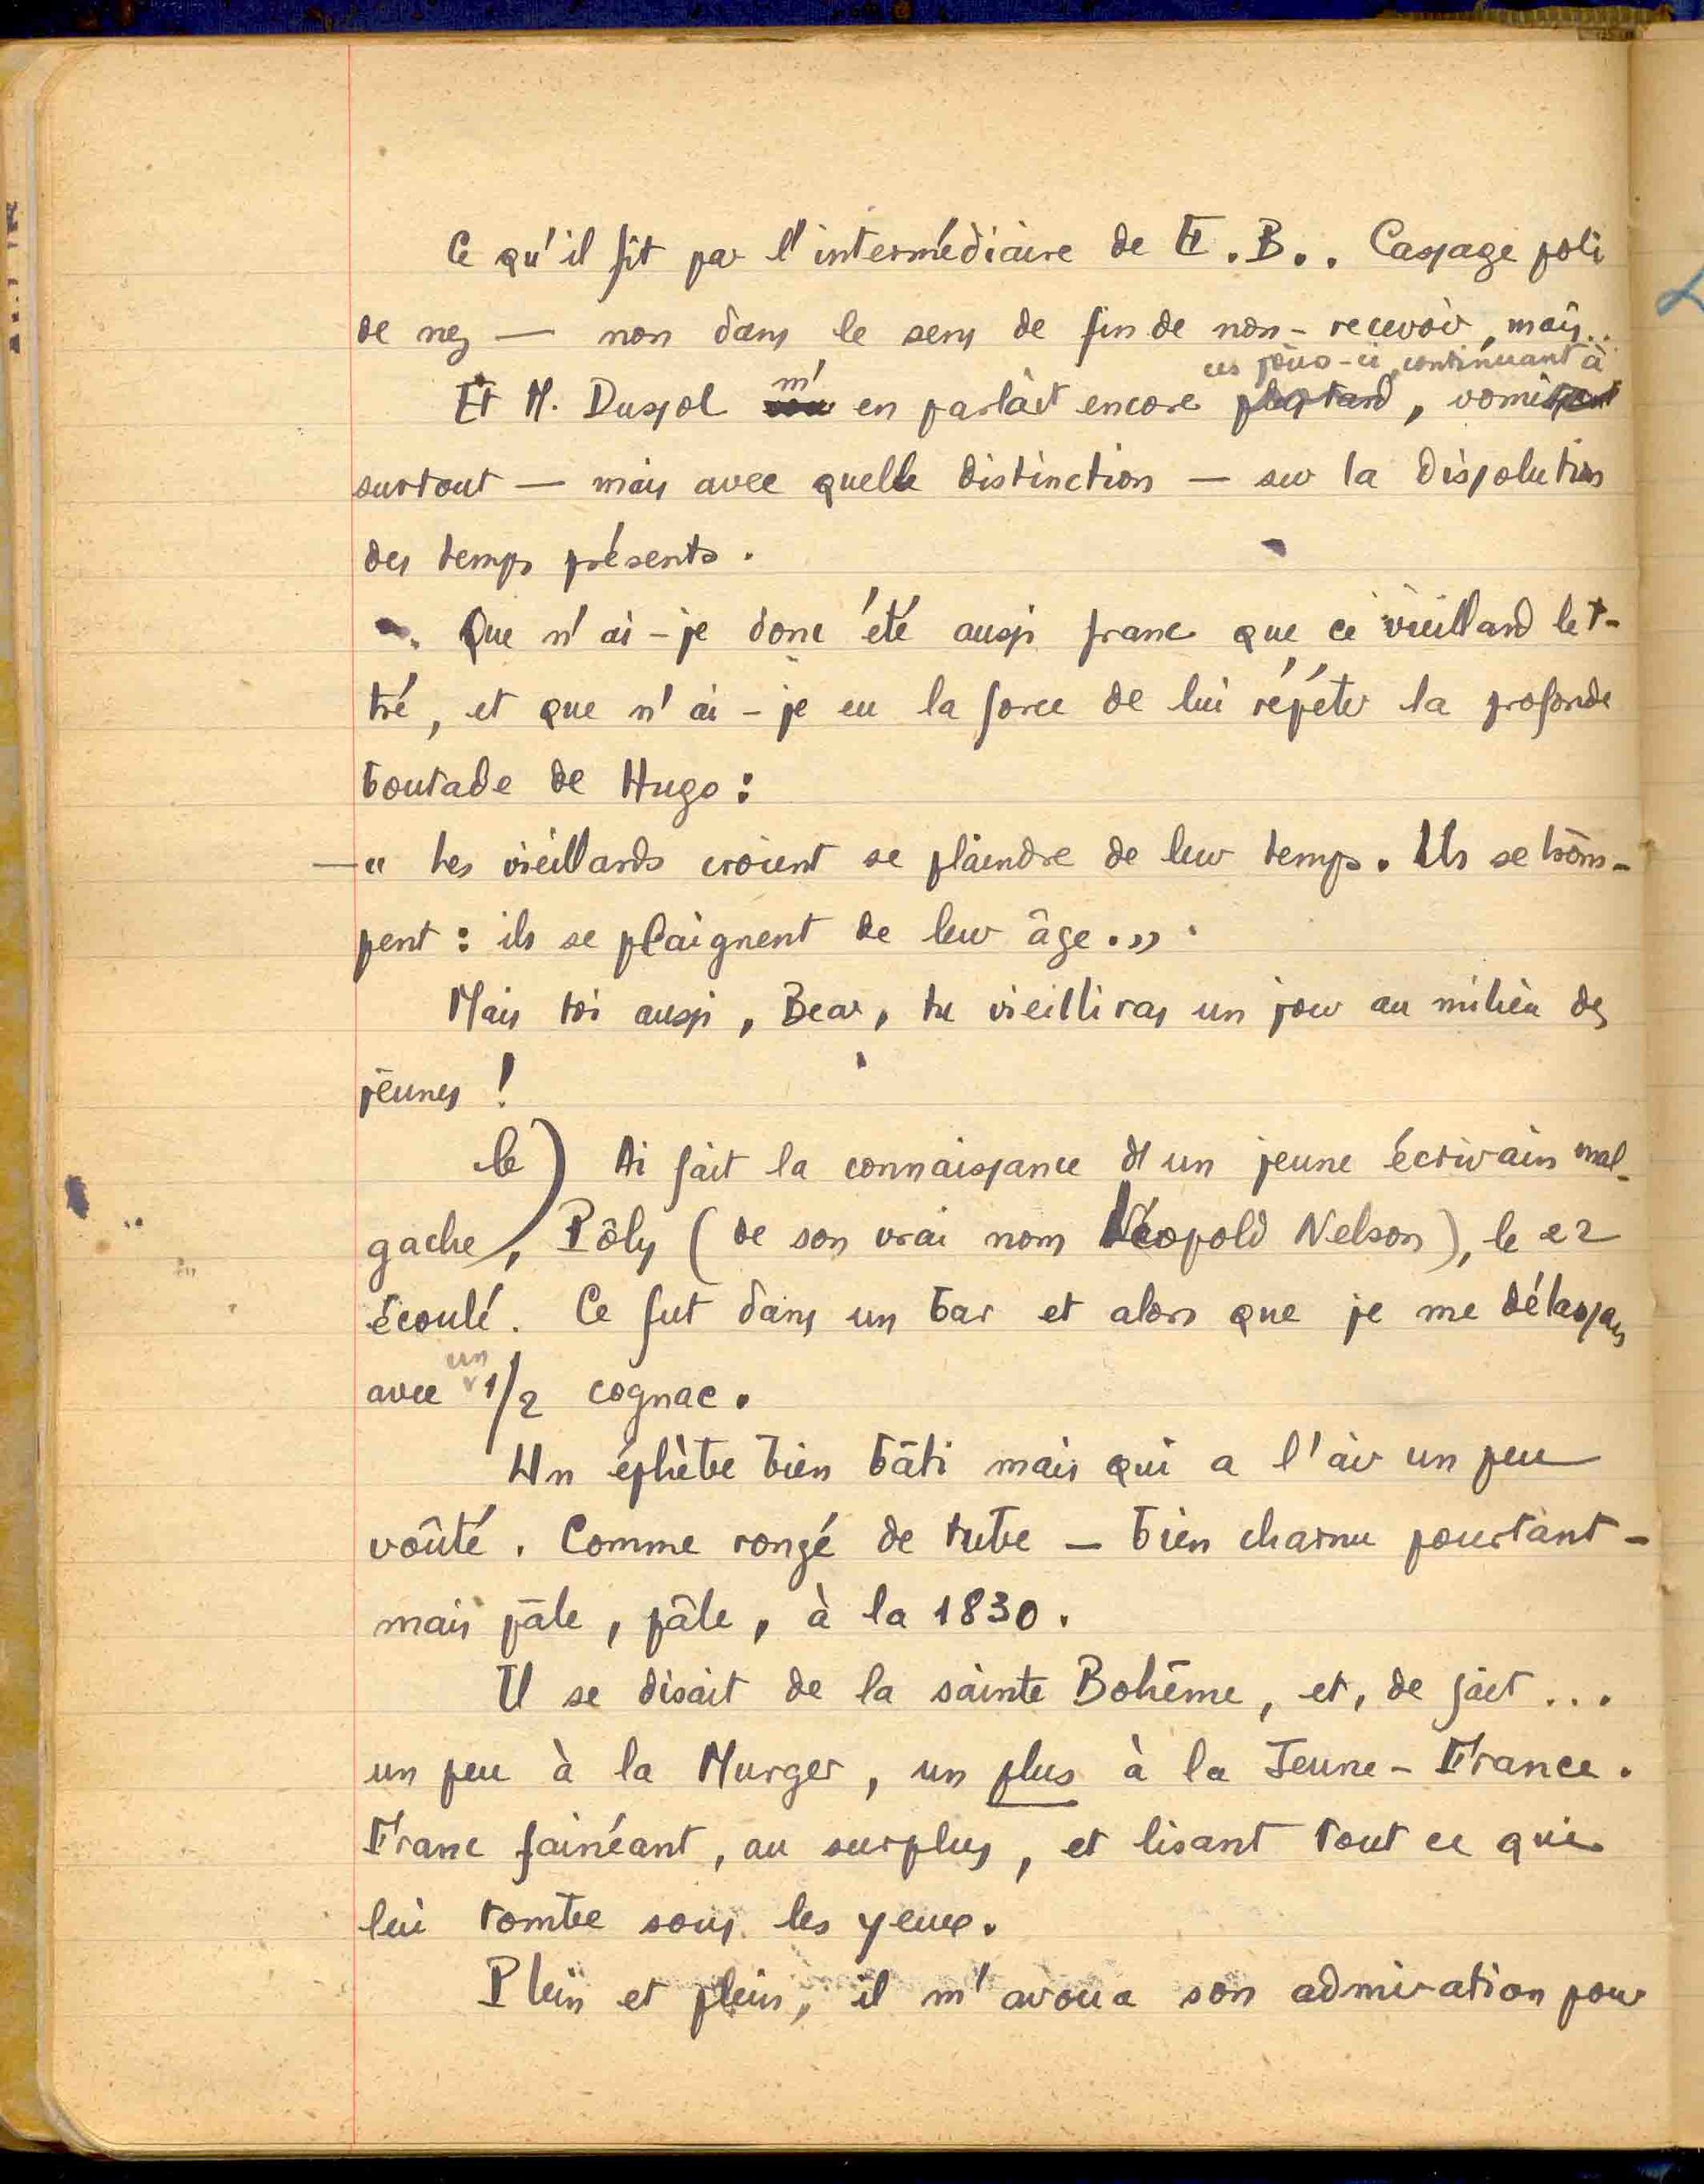 Ce qu'il fit par l'intermédiaire de E.B.. Cassage poli
de nez — non dans le sens de fin de non-recevoir, mais..
ces jours-ci, continuant à
m'
Et M. Dussol en parlait encore plus tard, vomissant
surtout — mais avec quelle distinction — sur la dissolution
des temps présents.
Que n'ai-je donc été aussi franc que ce vieillard let-
tré, et que n'ai-je eu la force de lui répéter la profonde
boutade de Hugo :
— « Les vieillards croient se plaindre de leur temps. Ils se trom-
pent : ils se plaignent de leur âge. »
Mais toi aussi, Bear, tu vieilliras un jour au milieu des
jeunes !
b) Ai fait la connaissance d'un jeune écrivain mal-
gache, Pôly (de son vrai nom Léopold Nelson), le 22
écoulé. Ce fut dans un bar et alors que je me délassais
un
avec 1/2 cognac.
Un éphèbe bien bâti mais qui a l'air un peu
voûté. Comme rongé de tube — bien charnu pourtant —
mais pâle, pâle, à la 1830.
Il se disait de la sainte Bohême, et, de fait ...
un peu à la Murger, un plus à la Jeune-France.
Franc fainéant, au surplus, et lisant tout ce qui
lui tombe sous les yeux.
Plein et plein, il m'avoua son admiration pour